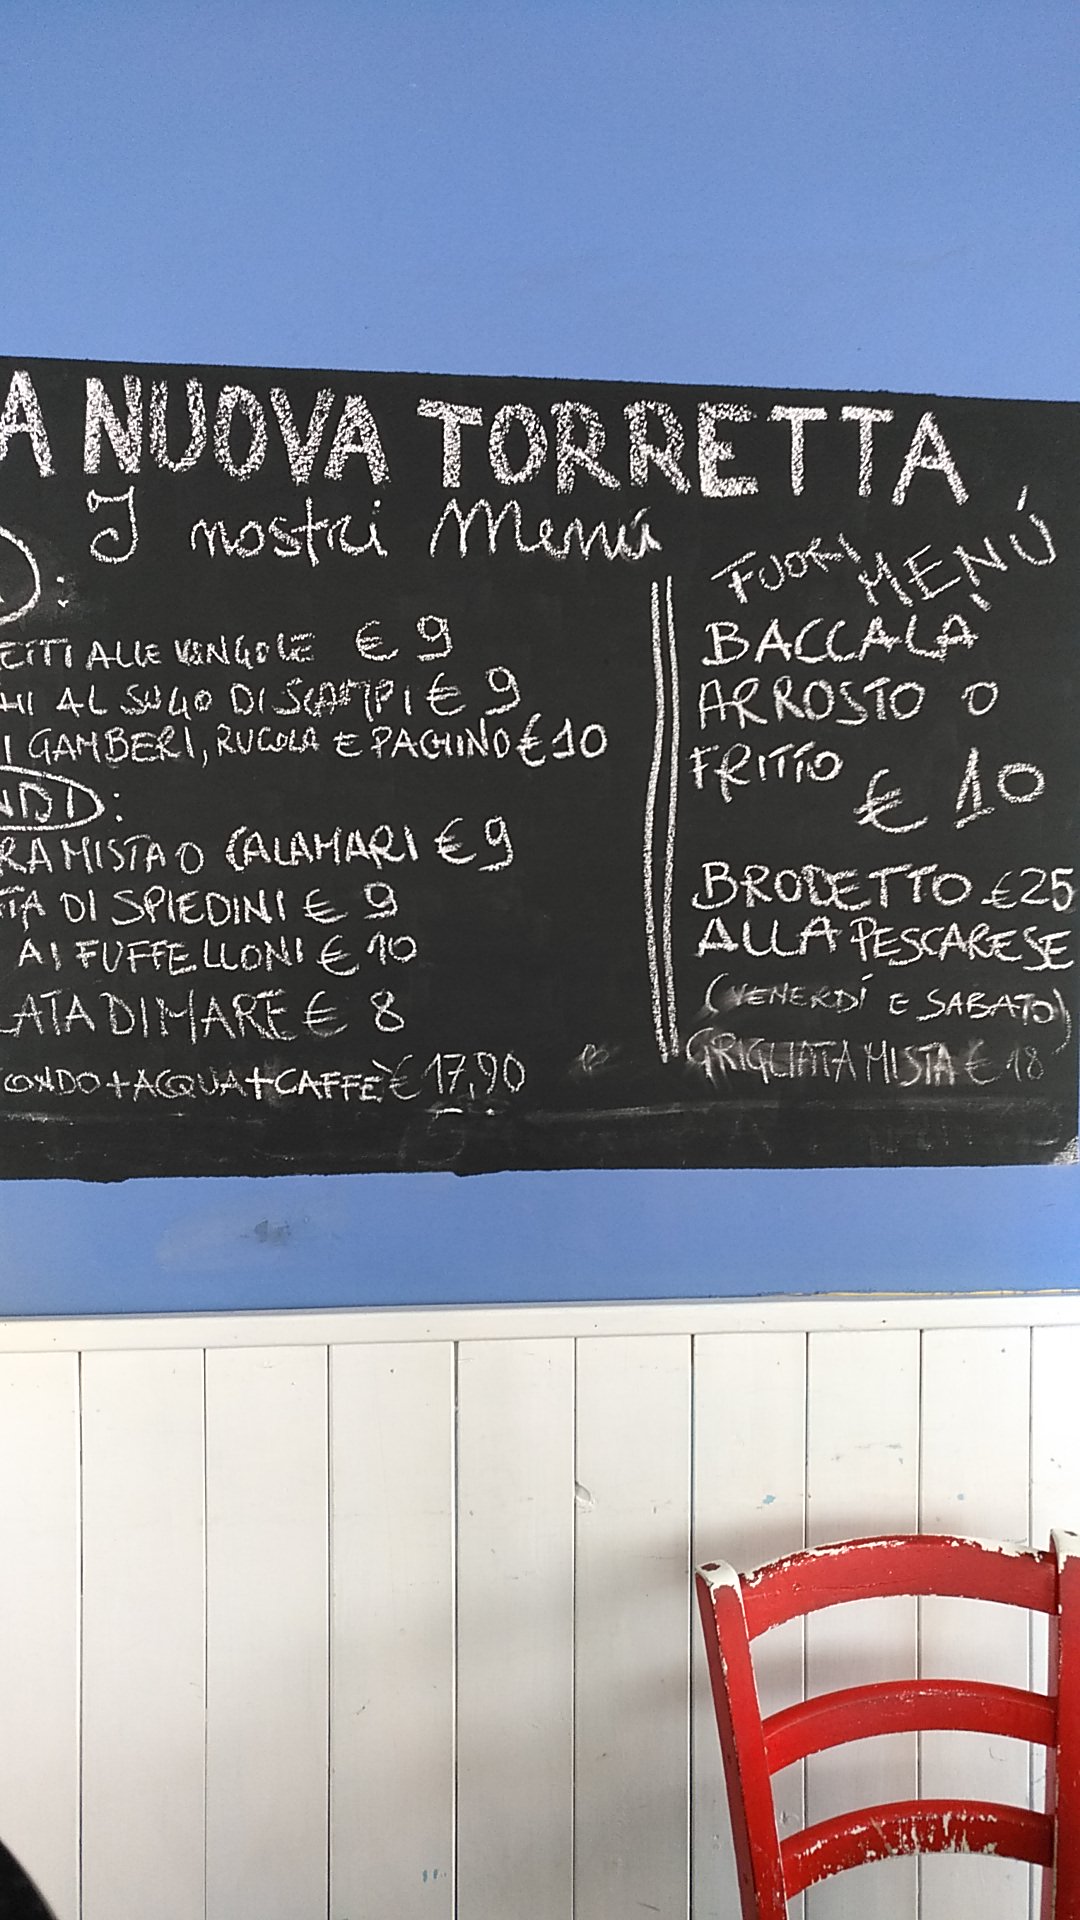 A NUOVA TORRETTA
I nostri Menú
:
ETTI ALLE VONGOLE € 9
HI AL SUGO DI SCAMPI € 9
I GAMBERI, RUCOLA E PACHINO € 10
NDI:
RA MISTA O CALAMARI € 9
TTA DI SPIEDINI € 9
AI FUFFELLONI € 10
LATA DI MARE € 8
ONDO+ACQUA+CAFFÈ € 17,90
FUORI MENÚ
BACCALÀ
ARROSTO O
FRITTO
€ 10
BRODETTO €25
ALLA PESCARESE
(VENERDÍ E SABATO)
GRIGLIATA MISTA € 18